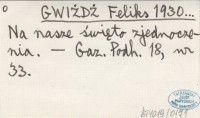 o GWIŻDŻ Feliks 1930...
Na nasze święto zjednocze-
nia. — Gaz. Podh. 18, nr
33.